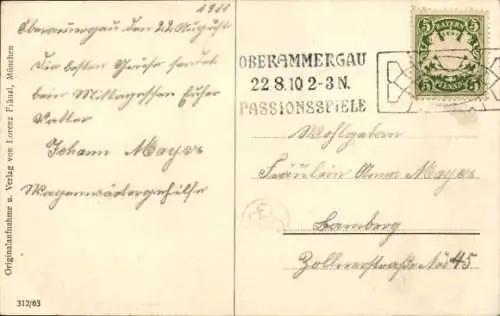 1910
Oberammergau den 22 August
Die besten Grüße sendet
beim Mittagessen Euher
Vatter
Johann Mayer
Wagenwärtergehilfe
Originalaufnahme u. Verlag von Lorenz Fränzl, München
312/63
BAYERN
5 5
PFENNIG
OBERAMMERGAU
22.8.10 2-3 N.
PASSIONSSPIELE
Wohlgeboren
Fräulein Anna Mayer
Bamberg
Zollnerstraße No 45